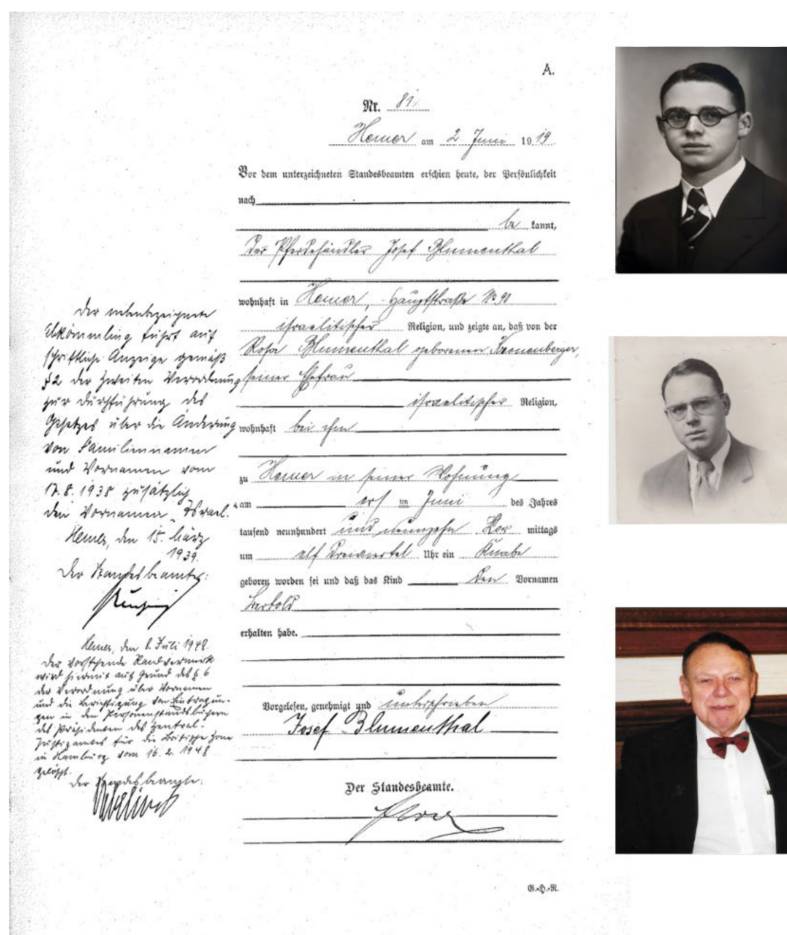 A.
Nr. 81.
Hemer am 2 Juni 1919
Vor dem unterzeichneten Standesbeamten erschien heute, der Persönlichkeit
nach
be kannt,
Der Pferdehändler Josef Blumenthal
wohnhaft in Hemer, Hauptstraße No 90
israelitischer Religion, und zeigte an, daß von der
Rosa Blumenthal geborenen Kronenberger,
seiner Ehefrau
israelitischer Religion,
wohnhaft bei ihm
zu Hemer in seiner Wohnung
am ersten Juni des Jahres
tausend neunhundert und neunzehn Vor mittags
um elf dreiviertel Uhr ein Knabe
geboren worden sei und daß das Kind den Vornamen
Bertold
erhalten habe.
Vorgelesen, genehmigt und unterschrieben
Josef Blumenthal
Der Standesbeamte.
G.-H.-R.
Der nebenbezeichnete
Abkömmling führt auf
schriftliche Anzeige gemäß
§2 der Zweiten Verordnung
zur Durchführung des
Gesetzes über die Änderung
von Familiennamen
und Vornamen vom
17.8.1938 zusätzlich
den Vornamen „Israel."
Hemer, den 15. März
1939.
Der Standesbeamte:
Hemer, den 8. Juli 1948.
Der vorstehende Randvermerk
wird hiermit auf Grund des § 6
der Verordnung über Vornamen
und die Berichtigung von Eintragun-
gen in den Personenstandsbüchern
des Präsidenten des Zentral-
Justizamtes für die Britische Zone
in Hamburg vom 16. 2. 1948
gelöscht.
Der Standesbeamte: